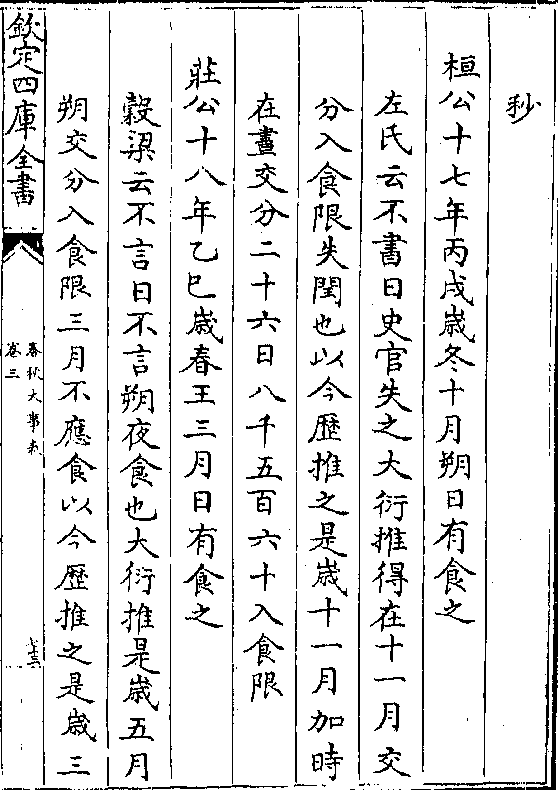 秒
桓公十七年丙戌歳冬十月朔日有食之
左氏云不書日史官失之大衍推得在十一月交
分入食限失閏也以今歴推之是歳十一月加時
在晝交分二十六日八千五百六十入食限
莊公十八年乙巳歳春王三月日有食之
穀梁云不言日不言朔夜食也大衍推是歳五月
朔交分入食限三月不應食以今歴推之是歳三
欽定四庫全書
春秋大事表
卷三